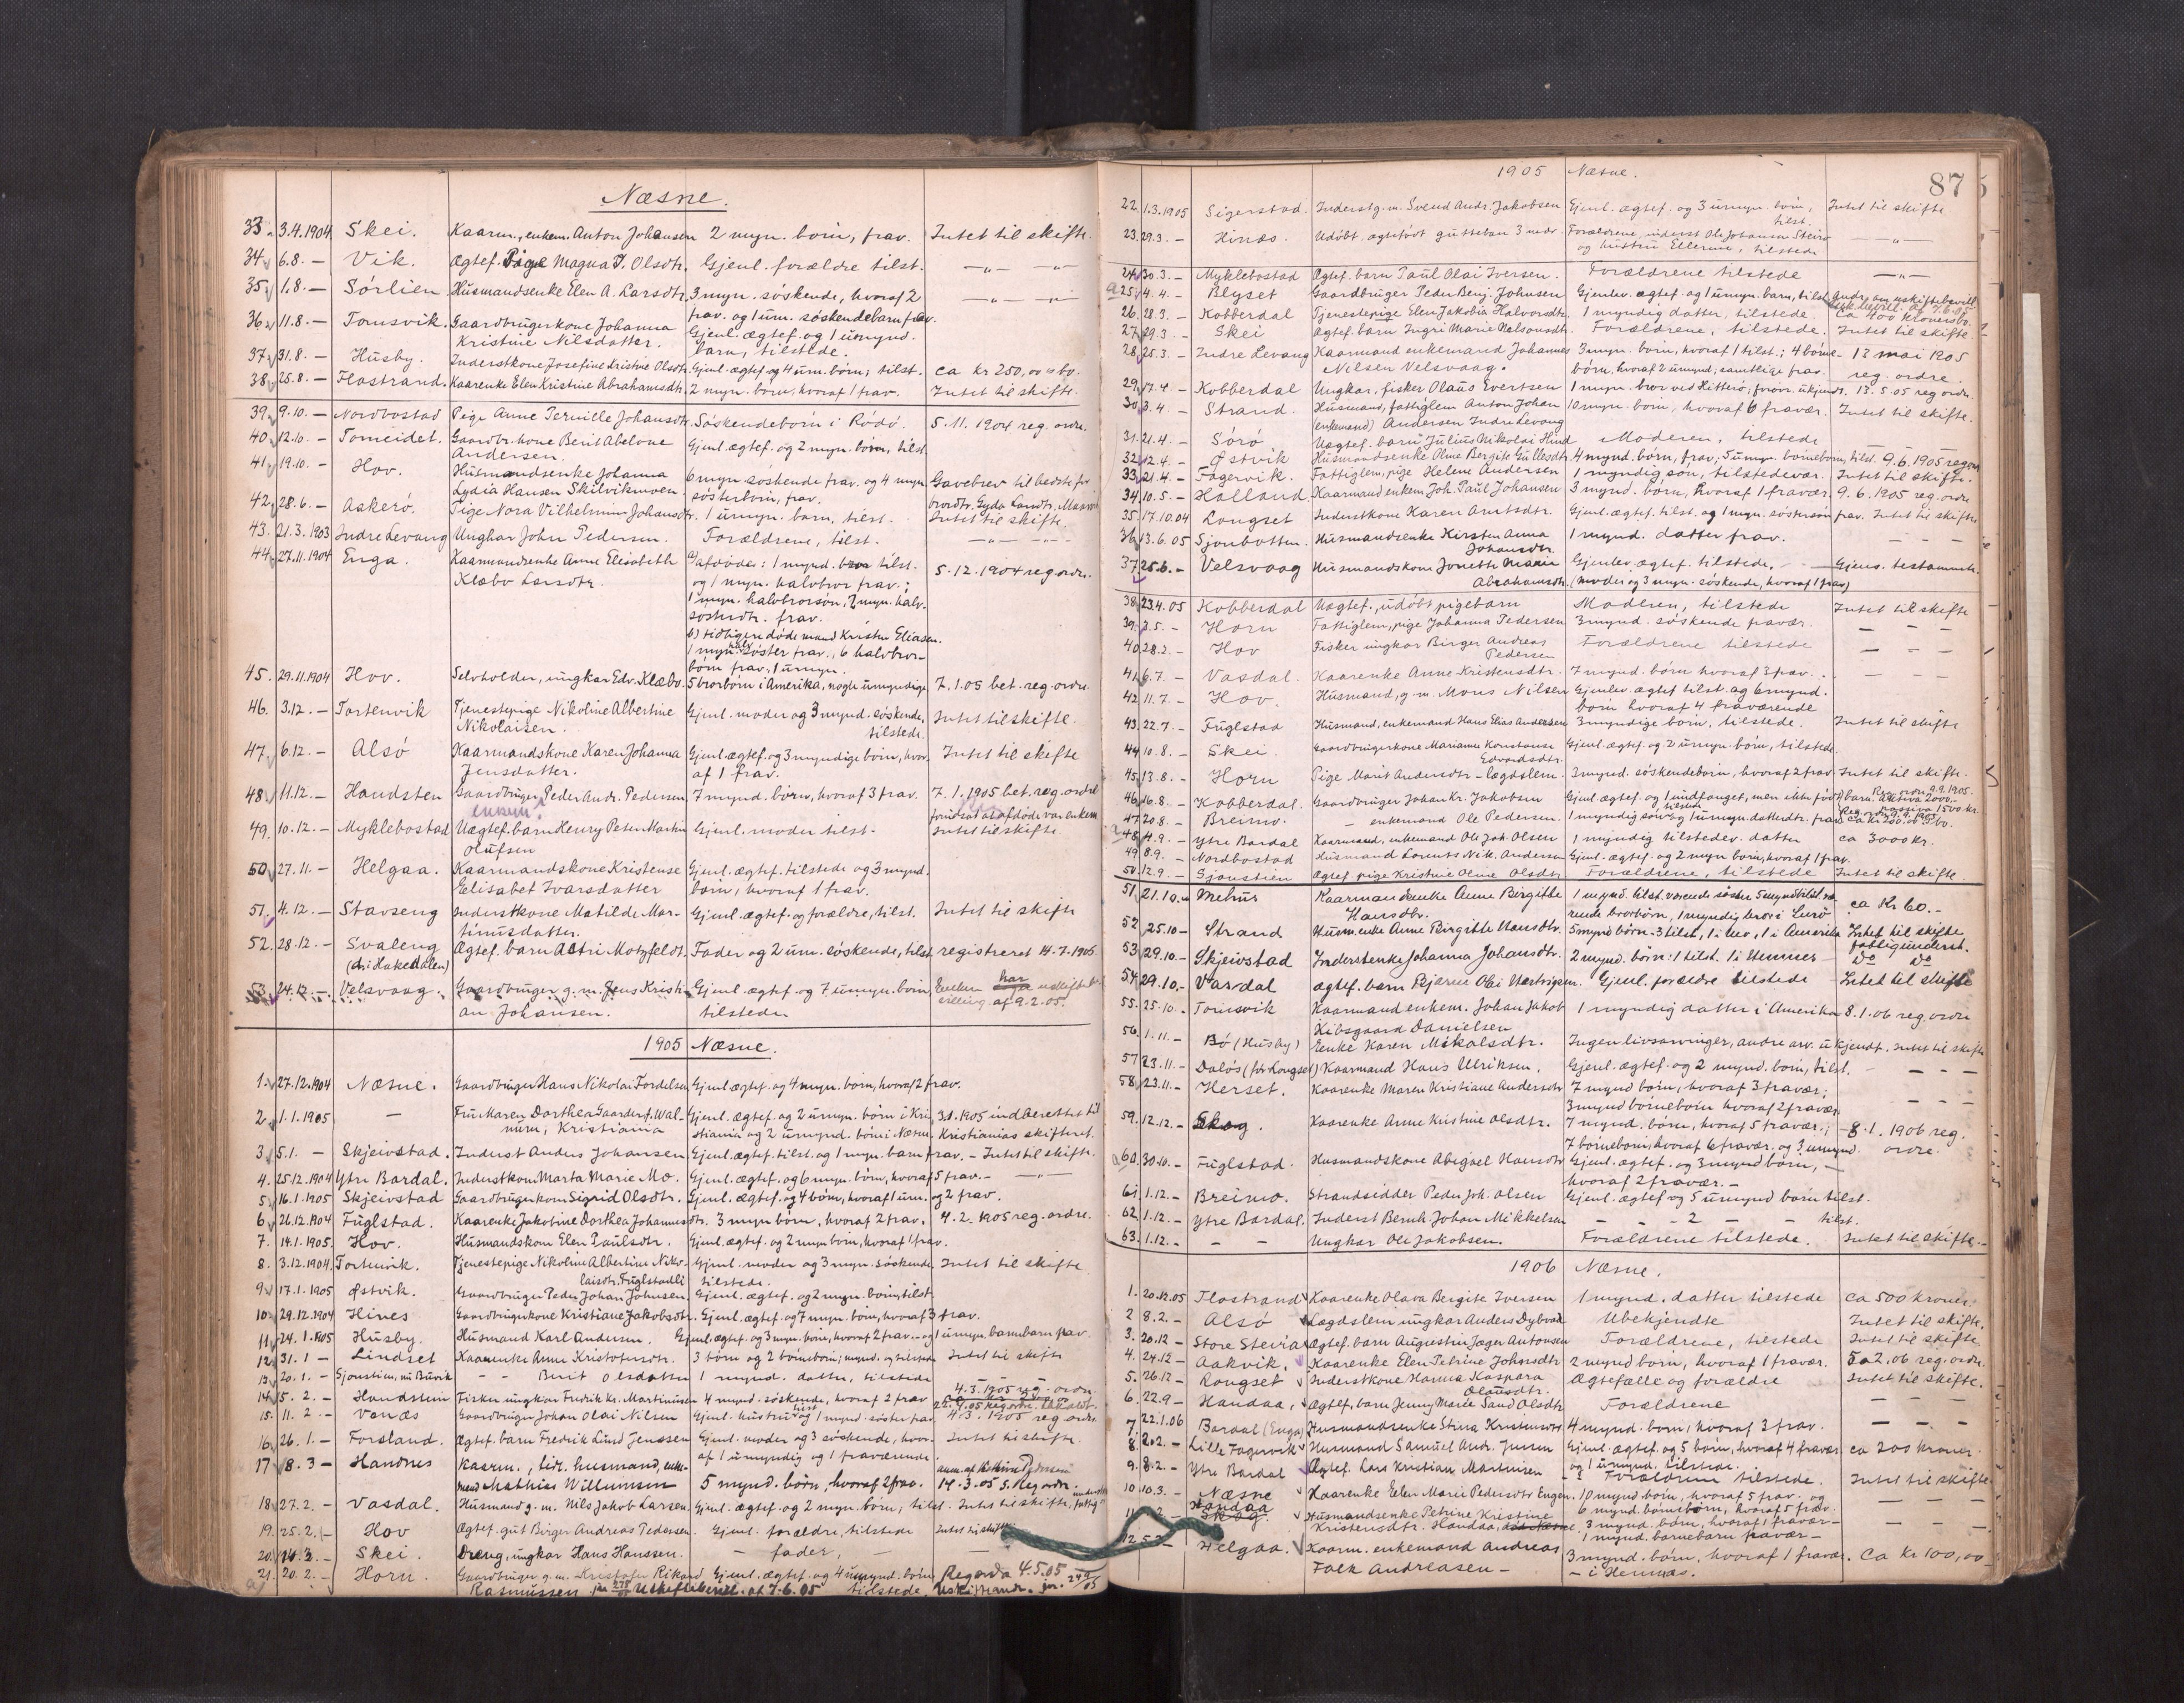 Næsne.
33. 3.4.1904 Skei. Kaarm., enkem. Anton Johansen 2 myn. børn, frav. Intet til skifte.
34 6.8. — Vik. Ægtef. Pige Magna J. Olsdtr. Gjenl. forældre tilst. —„— —„—
35 1.8. — Sørlien. Husmandsenke Elen A. Larsdtr. 3 myn. søskende, hvoraf 2 —„— —„—
frav. og 1 um. søskendebarn frav.
36 11.8. — Tomsvik. Gaardbrugerkone Johanna Gjenl. ægtef. og 1 umynd.
Kristine Nilsdatter. barn, tilstede.
37 31.8. — Husby. Inderstkone Josefine Kristine Olsdtr. Gjenl. ægtef. og 4 um. børn; tilst. ca kr 250,00 i bo.
38 25.8. — Flostrand. Kaarenke Elen Kristine Abrahamsdtr. 2 myn. børn, hvoraf 1 frav. Intet til skifte.
39 9.10. — Nordbostad Pige Anne Pernille Johansdtr. Søskendebørn i Rødø. 5.11.1904 reg. ordre.
40 12.10. — Tomeidet. Gaardbr. kone Berit Abelone Gjenl. ægtef. og 2 myn. børn, tilst.
Andersen.
41 19.10. — Hov. Husmandsenke Johanna 6 myn. søskende frav. og 4 myn. Gavebrev til
Lydia Hansen Skilvikmoen søsterbørn, frav.
42 28.6. — Aakerø. Pige Nora Vilhelmine Johansdtr. 1 umyn. barn, tilst. Intet til skifte.
43. 21.3.1903 Indre Levang Ungkar John Pedersen. Forældrene, tilst. —„— —„—
44 27.11.1904 Enga. Kaarmandsenke Anne Elisabeth a) afdøde: 1 mynd. bror tilst. 5.12.1904 reg. ordre.
Klæbo Larsdtr. og 1 myn. halvbror frav.;
1 myn. halvbrorsøn, 2 myn. halv-
søsterdtr. frav.
b) tidligere døde mand Kristen Eliasen.
1 myn. halvsøster frav., 6 halvbror-
børn frav., 1 umyn.
45. 29.11.1904 Hov. Selvholder, ungkar Edv. Klæbo. 5 brorbørn i Amerika, nogle umyndige 7.1.05 bet. reg. ordre
46. 3.12. — Tortenvik Tjenestepige Nikoline Albertine Gjenl. moder og 3 mynd. søskende, Intet til skifte.
Nikolaisen. tilstede.
47. 6.12. — Alsø Kaarmandskone Karen Johanna Gjenl. ægtef. og 3 myndige børn, hvor- Intet til skifte
Jensdatter. af 1 frav.
48 11.12. — Handsten Gaardbruger Peder Andr. Pedersen 7 mynd. børn, hvoraf 3 frav. 7.1.1905 bet. reg. ordre
enkem. forudsat at afdøde var enkem.
49. 10.12. — Myklebostad Uægtef. barn Henry Peter Martin Gjenl. moder tilst. Intet til skifte
Olufsen
50 27.11. — Helgaa. Kaarmandskone Kristense Gjenl. ægtef. tilstede og 3 mynd.
Elisabet Ivarsdatter børn, hvoraf 1 frav.
51. 4.12. — Stavseng Inderstkone Matilde Mar- Gjenl. ægtef. og forældre, tilst. Intet til skifte
tinusdatter.
52. 28.12. — Svaleng Ægtef. barn Astri Motzfeldt Fader og 2 um. søskende, tilst. registreret 14.7.1905
(d. i Hakedalen)
53. 24.12. — Velsvaag. Gaardbruger g.m. Jens Kristi- Gjenl. ægtef. og 7 umyn. børn, Enken har uskifteb-
an Johansen. tilstede villing af 9.2.05.
1905 Næsne.
1. 27.12.1904 Næsne. Gaardbruger Hans Nikolai Fordelsen Gjenl. ægtef. og 4 myn. børn, hvoraf 2 frav.
2. 1.1.1905 — Fru Maren Dorthea Gaarder f. Wal- Gjenl. ægtef. og 2 umyn. børn i Kri- 3.1.1905 indberettet til
num, Kristiania stiania og 2 umynd. børn i Næsne. Kristianias skifteret.
3. 5.1. — Skjeivstad. Inderst Anders Johansen Gjenl. ægtef. tilst. og 1 myn. barn frav. — Intet til skifte.
4. 25.12.1904 Ytre Bardal. Inderstkone Marta Marie Mo. Gjenl. ægtef. og 6 myn. børn, hvoraf 5 frav. — —„—
5. 16.1.1905 Skjeivstad Gaardbrugerkone Sigrid Olsdtr. Gjenl. ægtef. og 4 børn, hvoraf 1 um. og 2 frav.
6. 26.12.1904 Fuglstad. Kaarenke Jakobine Dorthea Johannesdtr. 3 myn. børn, hvoraf 2 frav. 4.2.1905 reg. ordre.
7. 14.1.1905. Hov. Husmandskone Elen Paulsdtr. Gjenl. ægtef. og 2 myn. børn, hvoraf 1 frav.
8. 3.12.1904. Tortenvik. Tjenestepige Nikoline Albertine Niko- Gjenl. moder og 3 myn. søskende, Intet til skifte
laisdtr. Fuglstadli tilstede.
9. 17.1.1905 Østvik. Gaardbruger Peder Johan Johnsen. Gjenl. ægtef. og 2 myn. børn, tilst.
10. 29.12.1904 Hines Gaardbrugerkone Kristiane Jakobsdtr. Gjenl. ægtef. og 7 myn. børn, hvoraf 3 frav.
11. 24.1.1905 Husby. Husmand Karl Andersen. Gjenl. ægtef. og 3 myn. børn, hvoraf 2 frav. — og 1 umyn. barnebarn frav.
12. 31.1 — Lindset Kaarenke Anne Kristofersdtr. 3 børn og 2 børnebørn; mynd. og tilstede Intet til skifte
13. 20.1. — Sjonstien, nu Buvik — — Berit Olsdatter 1 mynd. datter, tilstede
14. 5.2. — Handstein Fisker ungkar Fredrik Kr. Martinusen 4 mynd. søskende, hvoraf 2 frav. 4.3.1905 reg. ordre.
15. 11.2 — Vonæs Gaardbruger Johan Olai Nilsen Gjenl. hustru tilst. og 1 mynd. søster frav. 4.3.1905 reg. ordre
16. 26.1. — Forsland. Ægtef. barn Fredrik Lund Jenssen Gjenl. moder og 3 søskende, hvor- Intet til skifte.
af 1 umyndig og 1 fraværende.
17 8.3 — Handnes Kaarm., tidl. husmand, enke-
mand Mathias Willumsen 5 mynd. børn, hvoraf 2 frav. 14.3.05 s. Reg ordre.
18. 27.2. — Vasdal. Husmand g.m. Nils Jakob Larsen Gjenl. ægtef. og 2 myn. børn, tilst. Intet til skifte, fattig
19. 25.2. — Hov Ægtef. gut Birger Andreas Pedersen Gjenl. forældre, tilstede Intet til skifte
20. 14.3. — Skei. Dreng, ungkar Hans Hanssen. — fader, —
21. 20.2. — Horn. Gaardbruger g.m. Kristofer Rikard Gjenl. ægtef. og 4 umynd. børn Regordre 4.5.05
Rasmussen jnr 278/05 Uskiftebevill. af 7.6.05 tilstede
1905 Næsne. 87
22. 1.3.1905 Sigerstad. Inderst g.m. Svend Andr. Jakobsen Gjenl. ægtef. og 3 umyn. børn, Intet til skifte
tilst.
23. 29.3. — Hinæs. Udøbt, ægtefødt guttebarn 3 mdr. Forældrene, inderst Ole Johansen Steiro —„—
og hustru Ellerine, tilstede
24 30.3. — Myklebostad Ægtef. barn Paul Olai Iversen. Forældrene tilstede —„—
25 4.4. — Blyset Gaardbruger Peder Benj. Johnsen Gjenlev. ægtef. og 1 umyn. barn, tilst. Andr. om uskiftebevill.
26. 28.3. — Kobberdal Tjenestepige Elen Jakobia Halvorsdtr. 1 myndig datter, tilstede. ca 400 kroners bo.
27 29.3. — Skei Ægtef. barn Ingri Marie Nelsonsdtr. Forældrene, tilstede. Intet til skifte
28 25.3. — Indre Levang Kaarmand enkemand Johannes 3 myn. børn, hvoraf 1 tilst.; 4 børne- 13 mai 1905
Nilsen Velsvaag. børn, hvoraf 2 umynd; samtlige frav. reg. ordre.
29. 17.4. — Kobberdal Ungkar, fisker Olaus Evertsen 1 myn. bror ved Hitterø; forøvr. ukjendt. 13.5.05 reg. ordre.
30. 3.4. — Strand. Husmand, fattiglem Anton Johan 10 myn. børn, hvoraf 6 fravær. Intet til skifte.
enkemand) Andersen Indre Levang
31. 21.4. — Sørø Uægtef. barn Julius Nikolai Hind Moderen, tilstede —
32. 12.4. — Østvik Husmandsenke Oline Bergite Gullesdtr. 4 mynd. børn, frav.; 5 umyn. børnebørn, tilst. 9.6.1905 reg.
33. 21.4. — Fagervik. Fattiglem, pige Helene Andersen 1 myndig søn, tilstedevær. Intet til skifte.
34. 10.5. — Halland Kaarmand enkem. Joh. Paul Johansen 3 mynd. børn, hvoraf 1 fravær. 9.6.1905 reg. ordre
35. 17.10.04 Longset Inderstkone Karen Arntsdtr. Gjenl. ægtef. tilst. og 1 myn. søstersøn frav. Intet til skifte
36 13.6.05 Sjonbotten. Husmandsenke Kirsten Anna 1 mynd. datter frav. — — —
Johansdtr.
37 25.6. — Velsvaag Husmandskone Jonette Maria Gjenlev. ægtef. tilstede. — Gjens. testamente
Abrahamsdtr. (moder og 3 myn. søskende, hvoraf 1 frav)
38 23.4.05 Kobberdal Uægtef., udøbt pigebarn Moderen, tilstede Intet til skifte
39. 2.5. — Horn Fattiglem, pige Johanna Pedersen 3 mynd. søskende fravær. — — —
40. 28.2. — Hov Fisker ungkar Birger Andreas Forældrene tilstede — — —
Pedersen
41. 6.7. — Vasdal. Kaarenke Anne Kristensdtr. 7 mynd. børn hvoraf 3 frav. — — —
42 11.7. — Hov. Husmand, g.m. Mons Nilsen Gjenlev. ægtef tilst. og 6 mynd.
børn hvoraf 4 fraværende
43. 22.7. — Fuglstad Husmand, enkemand Hans Elias Andersen 3 myndige børn, tilstede. Intet til skifte
44 10.8. — Skei. Gaardbrugerkone Marianne Konstanse Gjenl. ægtef. og 2 umyn. børn, tilstede.
Edvardsdtr.
45 13.8. — Horn Pige Marit Andersdtr — lægdslem. 3 mynd. søskendebørn, hvoraf 2 frav. Intet til skifte.
46 16.8. — Kobberdal. Gaardbruger Johan Kr. Jakobsen Gjenl. ægtef. og 1 undfanget, men ikke født barn. Aktiva 2000.—
47 20.8. — Breimo. — enkemand Ole Pedersen. 1 myndig søn og 1 umyn. datterdtr. frav.
48 4.9. — Ytre Bardal Kaarmand, enkemand Ole Joh. Olsen 1 myndig tilstedev. datter ca 3000 kr.
49 8.9. — Nordbostad Husmand Lorents Nik. Andersen Gjenl. ægtef. og 2 myn børn, hvoraf 1 frav.
50 12.9. — Sjonstien Ægtef. pige Kristine Oline Olsdtr Forældrene, tilstede Intet til skifte.
51. 21.10.— Mehus Kaarmandsenke Anne Birgitte 1 mynd. tilst. værende søster 5 mynd tilst. væ- ca Kr 60.—
Hansdtr. rende brorbørn, 1 myndig bror i Lurø
52 25.10 — Strand Husm.enke Anne Birgitte Hansdtr. 5 mynd børn — 3 tilst., 1 i Mo, 1 i Amerika Intet til skifte
fattigunderst.
53 29.10.— Skjeivstad Inderstenke Johanna Johansdtr. 2 mynd. børn: 1 tilst. 1 i Hemnes Do Do
54 29.10.— Vasdal Ægtef. barn Bjarne Olai Hartvigsen. Gjenl. forældre tilstede Intet til skifte
55. 25.10. — Tomsvik Kaarmand enkem. Johan Jakob 1 myndig datter i Amerika 8.1.06 reg. ordre
Kibsgaard Danielsen
56. 1.11. — Bø (Husby) Enke Karen Mikalsdtr. Ingen livsarvinger, andre arv. ukjendt. Intet til skifte
57 23.11. — Daløs (før Longset) Kaarmand Hans Ulriksen. Gjenl. ægtef. og 2 mynd. børn, tilst. — — —
58. 23.11. — Herset. Kaarenke Maren Kristiane Andersdtr 7 mynd børn, hvoraf 3 fravær; — — —
3 mynd børnebørn hvoraf 2 fravær.
59. 12.12. — Skog. Kaarenke Anne Kristine Olsdtr. 7 mynd. børn, hvoraf 5 fravær.; 8.1.1906 reg.
7 børnebørn, hvoraf 6 fravær. og 3 umynd. ordre.
60. 30.10. — Fuglstad. Husmandskone Abigael Hansdtr Gjenl. ægtef. og 3 mynd børn, —
hvoraf 2 fravær. —
61. 1.12. — Breimo. Strandsidder Peder Joh. Olsen Gjenl. ægtef og 5 umynd børn tilst.
62. 1.12. — Ytre Bardal. Inderst Bernh. Johan Mikkelsen — — 2 — tilst.
63. 1.12. — — — Ungkar Ole Jakobsen. Forældrene tilstede. Intet til skifte. —
1906 Næsne.
1. 20.12.05 Flostrand Kaarenke Olava Bergite Iversen 1 mynd. datter tilstede ca 500 kroner.
2 8.2. — Alsø Lægdslem ungkar Anders Dybvad Ubekjendte Intet til skifte.
3. 20.12 — Store Stevia Ægtef. barn Augustin Jæger Antonsen Forældrene, tilstede Intet til skifte
4. 24.12 — Aakvik. Kaarenke Elen Petrine Johnsdtr 2 mynd børn, hvoraf 1 fravær. 2.06 reg. ordre.
5. 26.12 — Longset Inderstkone Hanna Kaspara Ægtefælle og forældre Intet til skifte.
Olausdtr.
6. 22.9 — Handaa, Ægtef. barn Jenny Marie Sand Olsdtr Forældrene — —
7 22.1.06 Bardal (Enga) Husmandsenke Stina Kristensdtr 4 mynd. børn, hvoraf 3 frav. — — —
8. 20.2. — Lille Fagervik Husmand Samuel Andr. Jensen Gjenl. ægtef. og 5 børn, hvoraf 4 fravær ca 200 kroner.
og 1 umynd. tilstede.
9. 8.2. — Ytre Bardal Ægtef. Lars Kristian Martinisen Forældrene tilstede. Intet til skifte.
10 10.3. — Næsne Kaarenke Elen Marie Pedersdtr Engen. 10 mynd børn, hvoraf 5 frav. og — — —
6 mynd. børnebørn, hvoraf 5 frav.
11 — Handaa Skog. Husmandsenke Petrine Kristine 3 mynd. børn, hvoraf 1 fravær — — — —
Kristensdtr. Handaa, 1 mynd. barnebarn fravær —
12 — Helgaa. Kaarm. enkemand Andreas 3 mynd. børn, hvoraf 1 fravær. Ca kr 100,00
Falk Andreasen — — i Hemnæs.